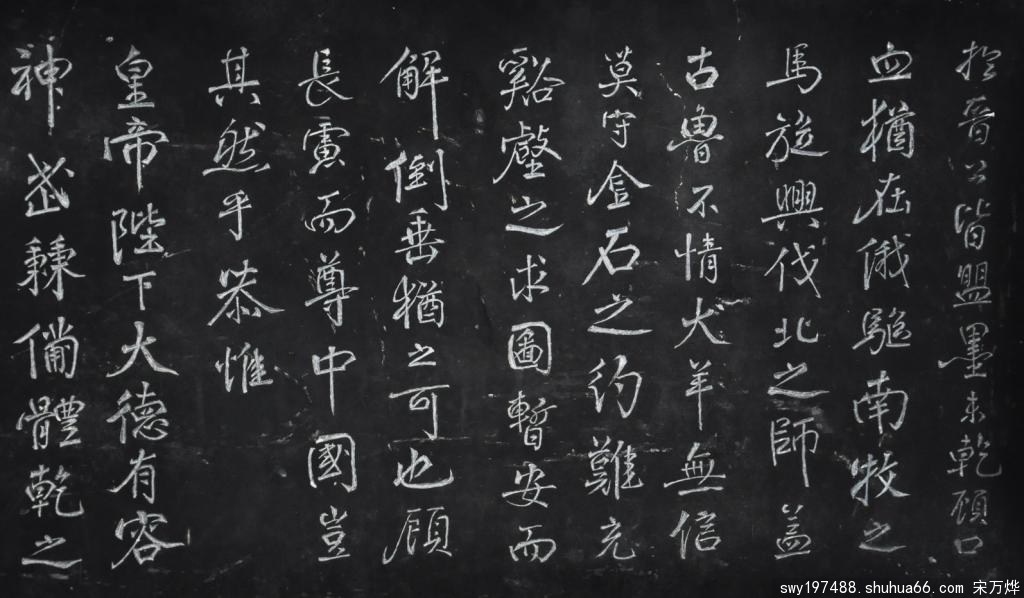 於晉公皆盟墨未乾顧口
血猶在俄驅南牧之
馬旋興伐北之師蓋
古魯不情犬羊無信
莫守金石之約難充
谿壑之求圖暫安而
解倒垂猶之可也顧
長慮而尊中國豈
其然乎恭惟
皇帝陛下大德有容
神武體乾之
swy197488.shuhua66.com 宋万烨